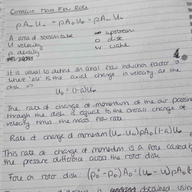 Constant Mass Flow Rate
ρA∞U∞ = ρAdUd = ρAwUw
A area of stream tube ∞ upstream
U velocity d disk
ρ density w wake
It is usual to define an axial flow induction factor a
where is the axial change in velocity at the
disk
Ud = U∞(1-a)
The rate of change of momentum of the air passing
through the disk is equal to the overall change of
velocity times the mass flow rate
Rate of change of momentum = (U∞-Uw)ρAdU∞(1-a)
This rate of change of momentum is a force caused by
the pressure difference across the rotor disk
Force on rotor disk: (Pd+ - Pd-)Ad = (U∞ - Uw)ρAdU∞(1-a)
obtained